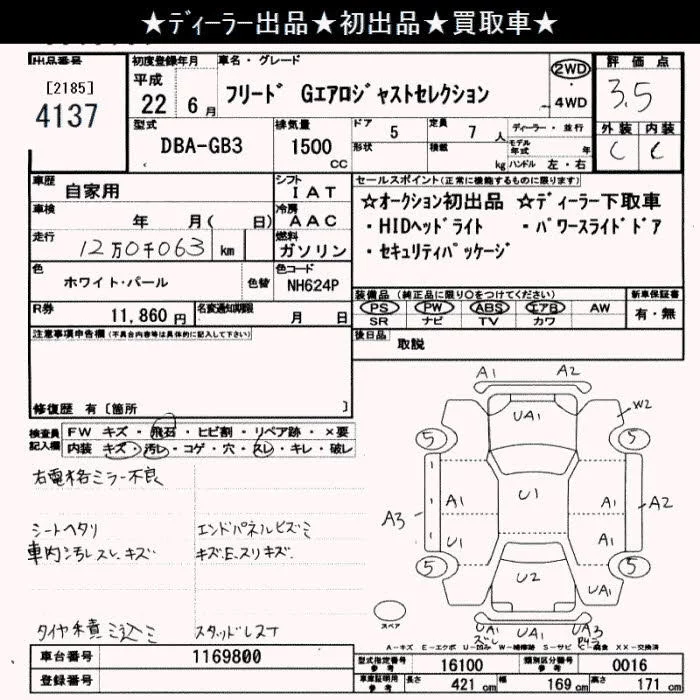 ★ディーラー出品★初出品★買取車★
出品番号
[2185]
4137
初度登録年月
平成
22 6月
車名・グレード
フリード Gエアロジャストセレクション
2WD
4WD
評価点
3.5
外装 内装
C C
型式
DBA-GB3
排気量
1500
CC
ドア 5
定員 7人
形状
積載 kg
ディーラー・並行
モデル年式 年
ハンドル 左・右
車歴
自家用
シフト
IAT
車検
年 月( 日)
冷房
AAC
走行
12万0千063 km
燃料
ガソリン
色
ホワイト・パール
色替
色コード
NH624P
R券
11,860円
名変通知期限
月 日
セールスポイント(正常に機能するものに限ります)
☆オークション初出品 ☆ディーラー下取車
・HIDヘッドライト ・パワースライドドア
・セキュリティパッケージ
装備品 (純正品に限り○をつけてください)
PS PW ABS エアB AW
SR ナビ TV カワ
新車保証書
有・無
後日品
取説
注意事項申告欄(不具合内容等は具体的に記入して下さい)
修復歴 有〔箇所 〕
検査員記入欄
FW キズ・飛石・ヒビ割・リペア跡・×要
内装 キズ・汚レ・コゲ・穴・スレ・キレ・破レ
右電格ミラー不良
シートヘタリ
エンドパネルヒズミ
車内汚レ スレ キズ
キズE スリキズ
タイヤ積ミ込ミ
スタッドレス
A1 A2
UA1
W2
5 5
U1
A1 A1
A3 A2
U1 A1
5 5
U2
UA1 UA1
スペア
UA1 UA3
ズレ
A-キズ E-エクボ U-凹み W-補修跡 S-サビ C-腐食 XX-交換済
車台番号
1169800
登録番号
型式指定番号 参考
16100
類別区分番号 参考
0016
車庫証明用 参考
長さ 421cm
幅 169cm
高さ 171cm